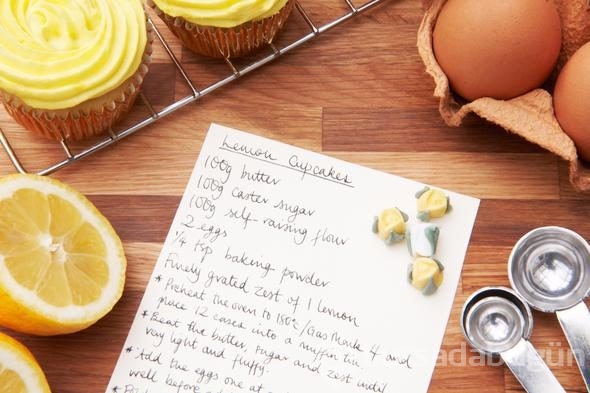 Lemon Cupcakes
100g butter
100g caster sugar
100g self-raising flour
2 eggs
1/4 tsp baking powder
Finely grated zest of 1 lemon
* Preheat the oven to 180°c/Gas Mark 4 and
place 12 cases into a muffin tin.
* Beat the butter, sugar and zest until
very light and fluffy.
* Add the eggs one at a
well before